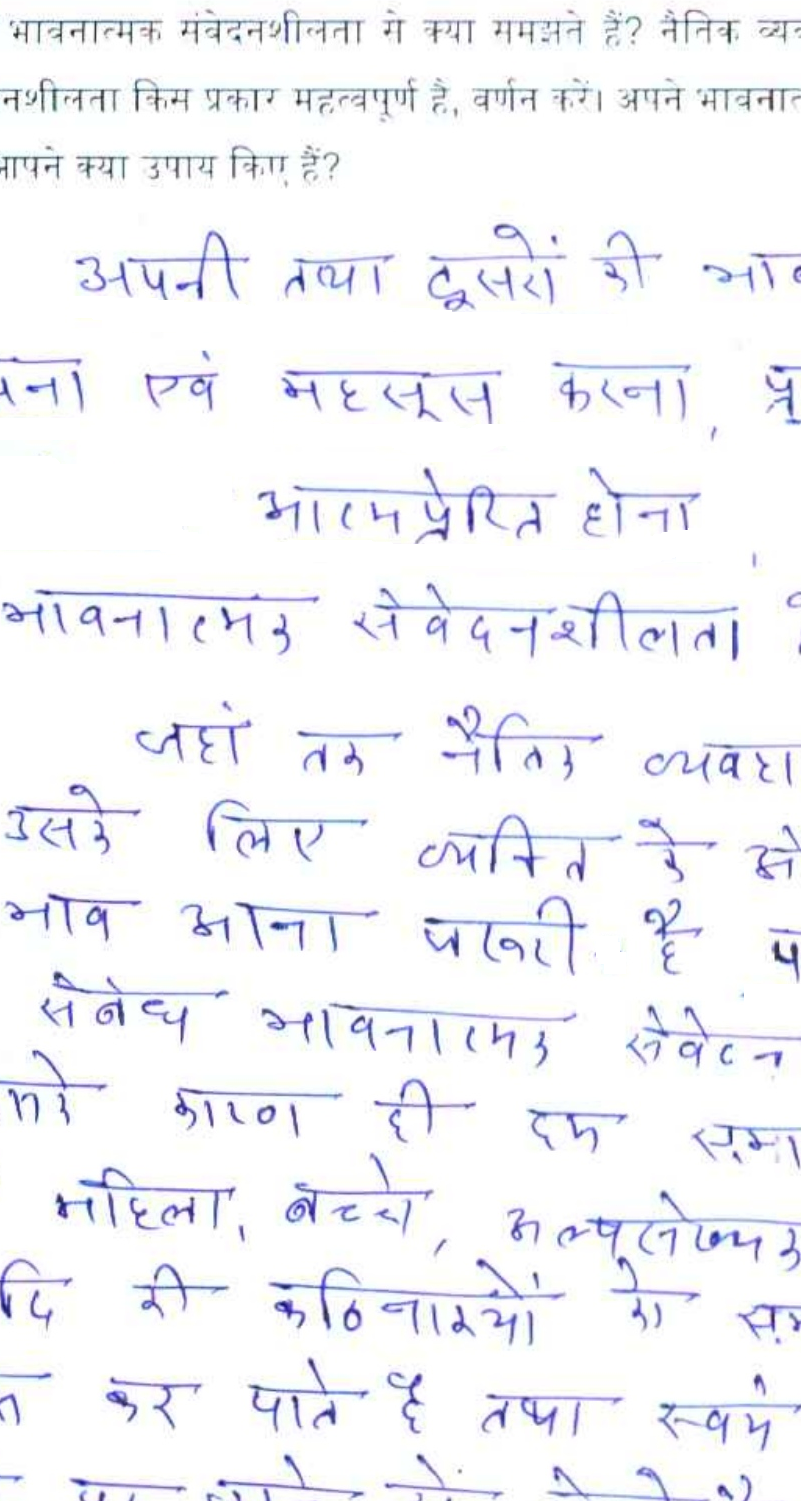 भावनात्मक संवेदनशीलता से क्या समझते हैं? नैतिक
नशीलता किस प्रकार महत्वपूर्ण है, वर्णन करें। अपने
आपने क्या उपाय किए हैं?
अपनी तथा दूसरों की
एवं महसूस करना,
आत्मप्रेरित होना
भावनात्मक संवेदनशीलता
जहां तक नैतिक
उसके लिए व्यक्ति के
भाव आना जरूरी है
संबंध भावनात्मक
कारण ही हम
महिला, बच्चे, अल्पसंख्यक
की कठिनाइयों को
कर पाते है तथा स्वयं